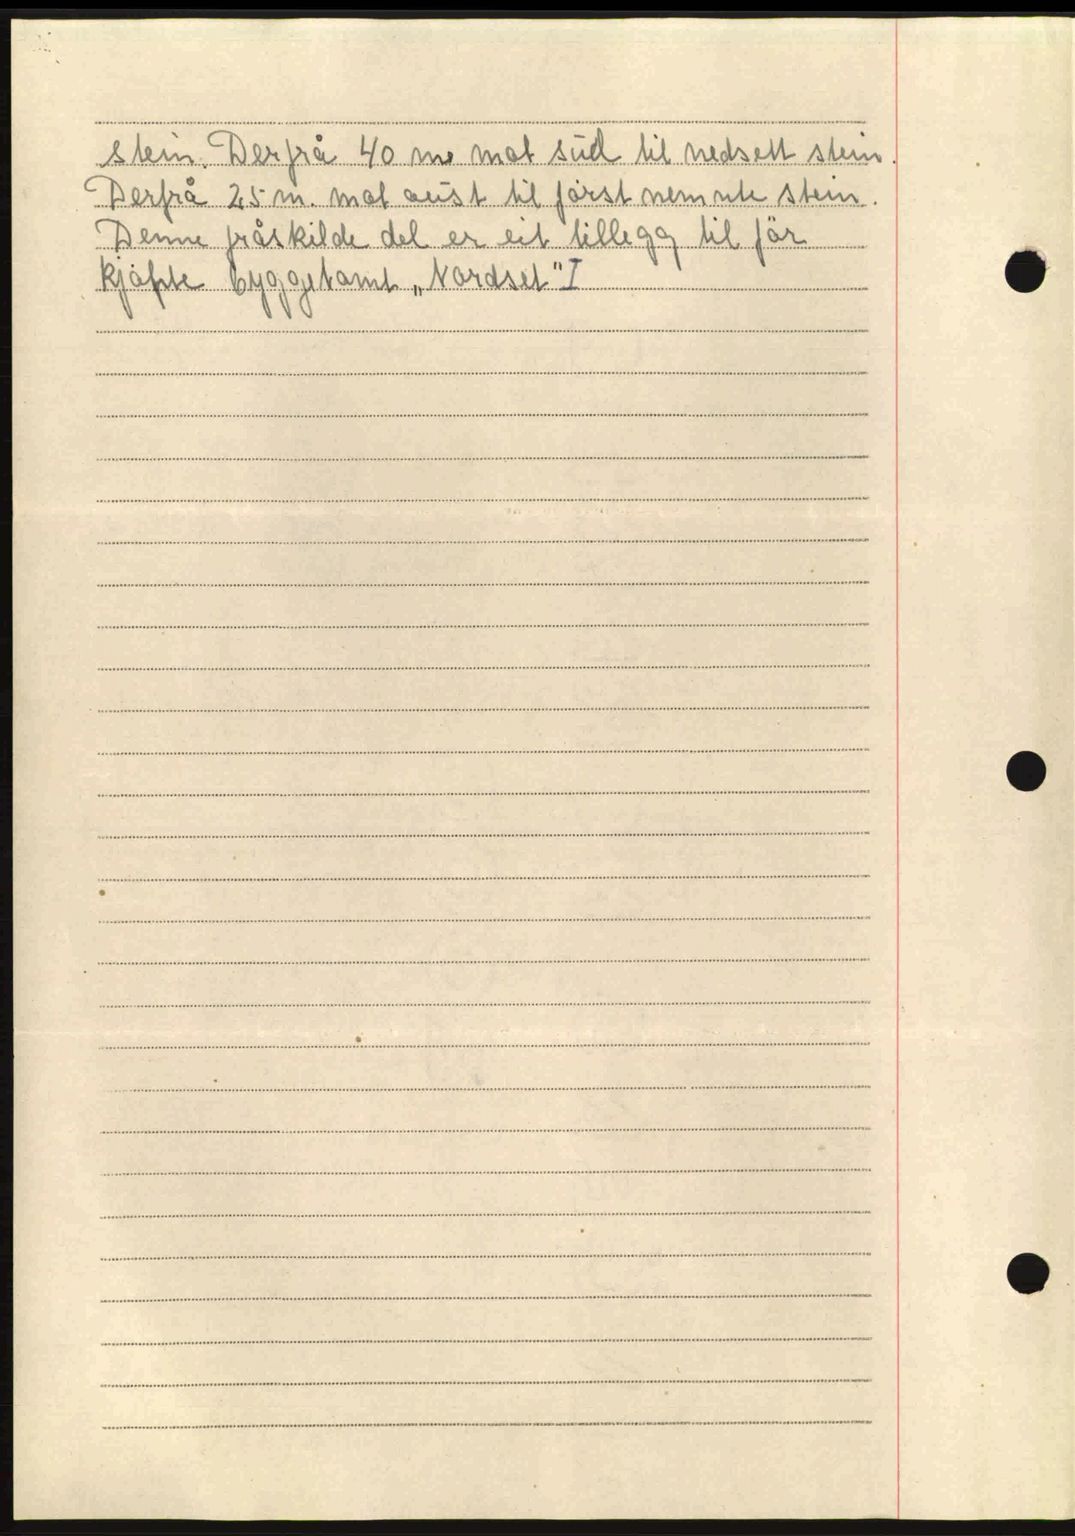 stein. Derfrå 40 m mot sud til nedsett stein.
Derfrå 25 m. mot aust til först nemnte stein.
Denne fråskilde del er eit tillegg til för
kjöpte byggetomt „Nordset" I